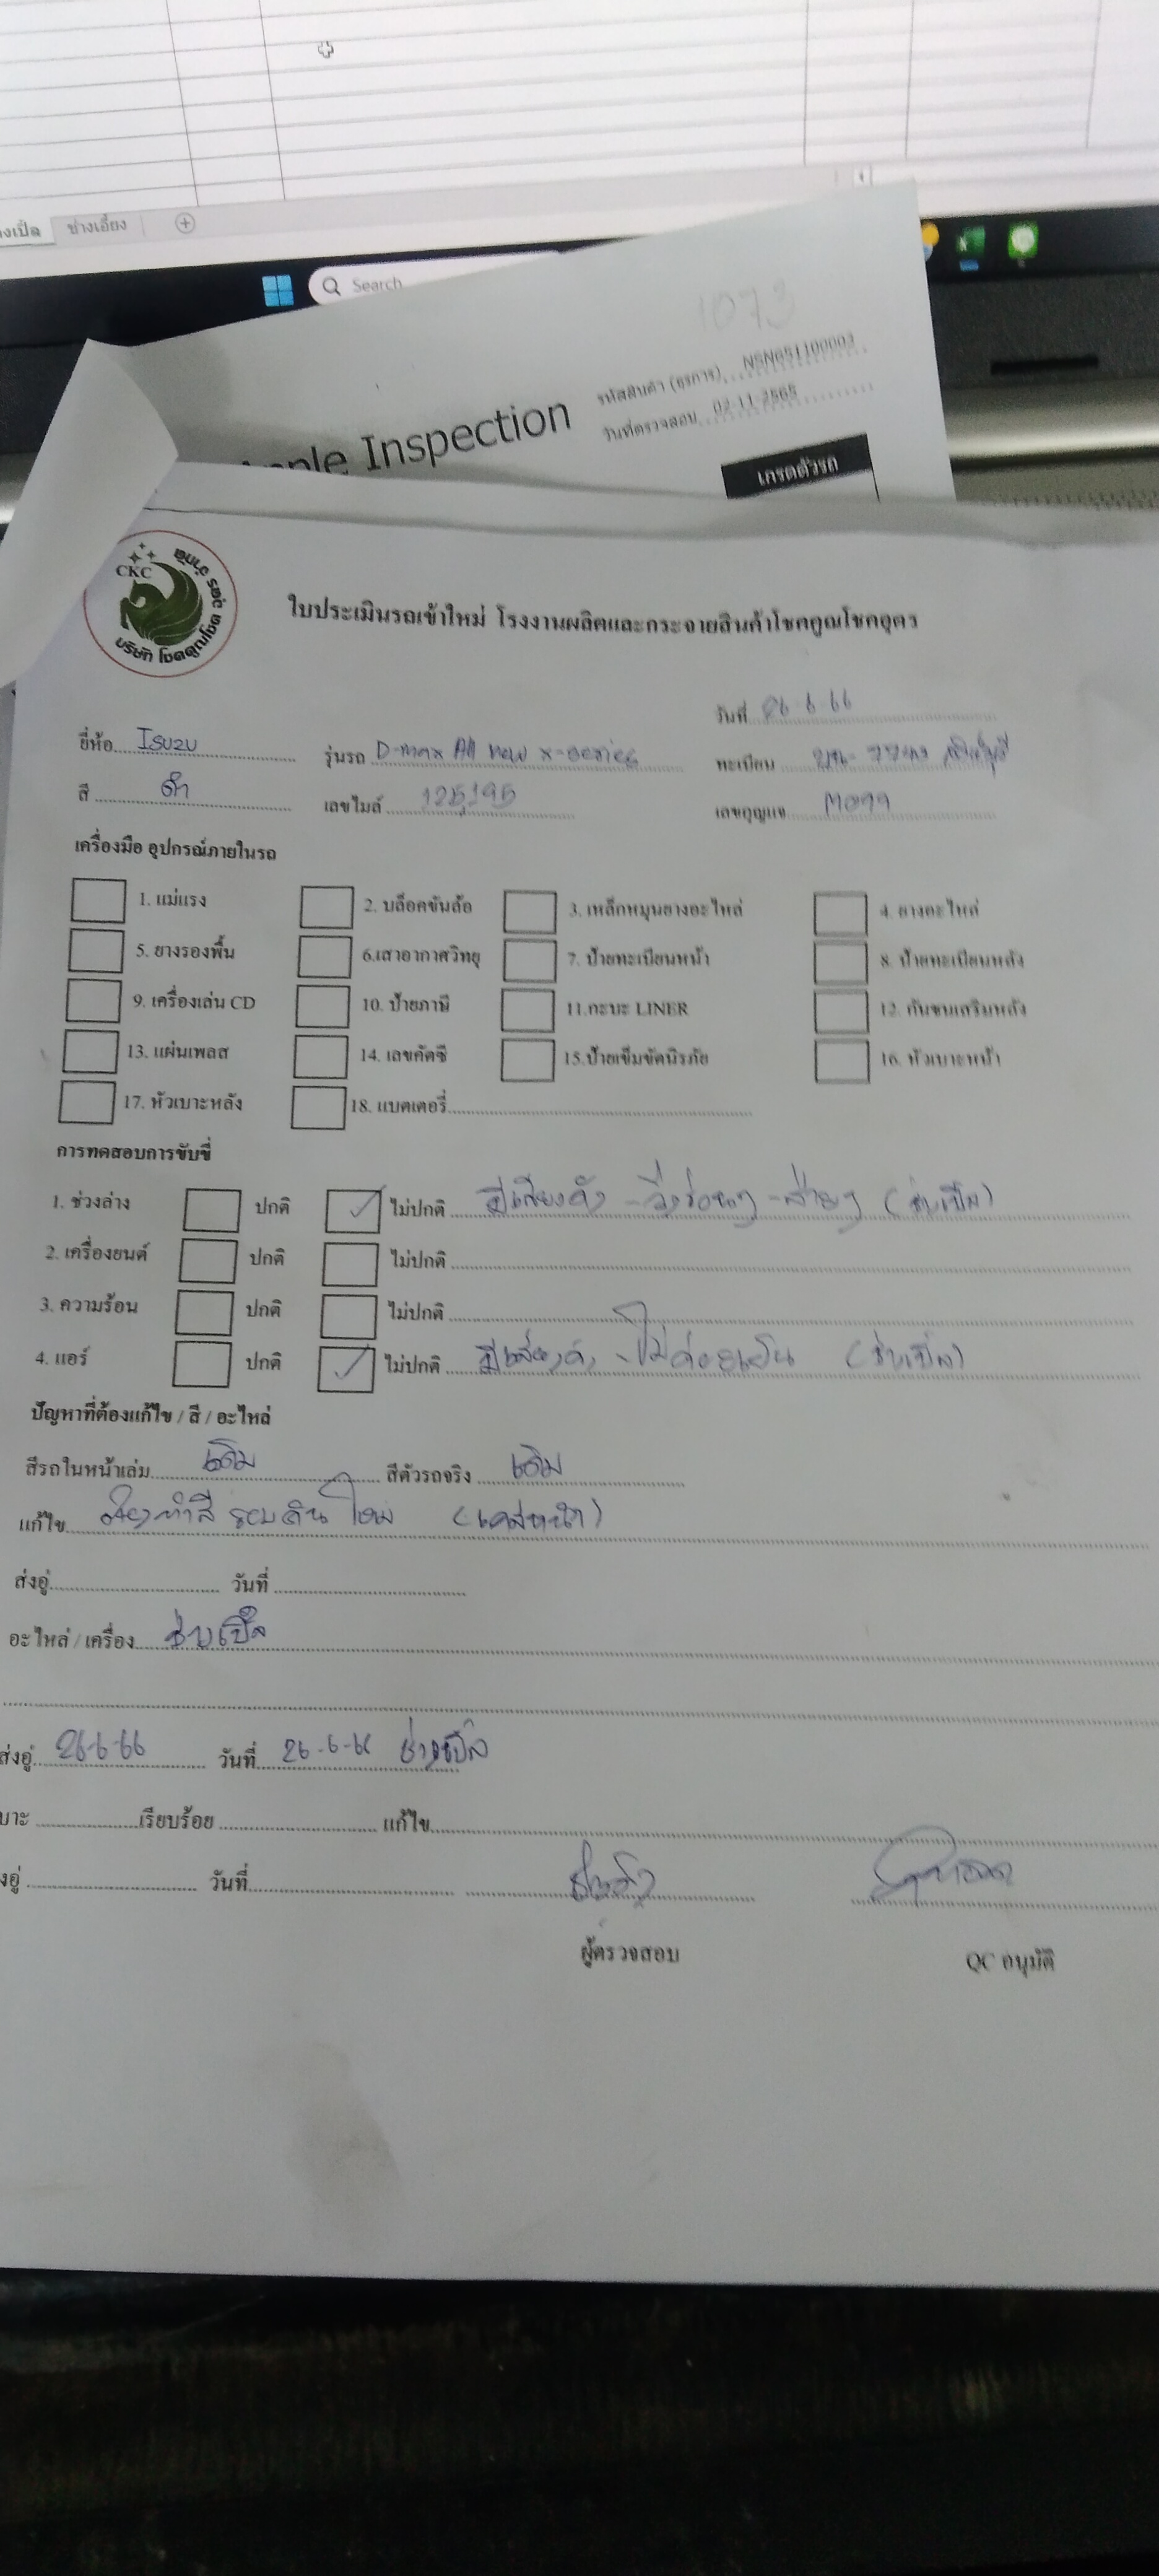 ช่างเอี้ยง
Search
1073
รหัสสินค้า (ธุรการ) NSN651100003
วันที่ตรวจสอบ 02-11-2565
Inspection
เกรดตัวรถ
CKC
บริษัท โชคคูณโชค อุดร จำกัด
ใบประเมินรถเข้าใหม่ โรงงานผลิตและกระจายสินค้าโชคคูณโชคอุดร
วันที่ 26-6-66
ยี่ห้อ ISUZU รุ่นรถ D-max All new x-series ทะเบียน
สี ดำ เลขไมล์ 125,195 เลขกุญแจ
เครื่องมือ อุปกรณ์ภายในรถ
1. แม่แรง 2. บล็อคขันล้อ 3. เหล็กหมุนยางอะไหล่ 4. ยางอะไหล่
5. ยางรองพื้น 6.เสาอากาศวิทยุ 7. ป้ายทะเบียนหน้า 8. ป้ายทะเบียนหลัง
9. เครื่องเล่น CD 10. ป้ายภาษี 11.กะบะ LINER 12. กันชนเสริมหลัง
13. แผ่นเพลส 14. เลขคัดซี 15.ป้ายเข็มขัดนิรภัย 16. หัวเบาะหน้า
17. หัวเบาะหลัง 18. แบตเตอรี่
การทดสอบการขับขี่
1. ช่วงล่าง ปกติ ไม่ปกติ มีเสียงดัง - วิ่งร่อนๆ - ส่ายๆ (ช่างเปิ้ล)
2. เครื่องยนต์ ปกติ ไม่ปกติ
3. ความร้อน ปกติ ไม่ปกติ
4. แอร์ ปกติ ไม่ปกติ มีเสียงดัง - ไม่ค่อยเย็น (ช่างเปิ้ล)
ปัญหาที่ต้องแก้ไข / สี / อะไหล่
สีรถในหน้าเล่ม เดิม สีตัวรถจริง เดิม
แก้ไข ต้องทำสี รอบคัน ใหม่
ส่งอู่ วันที่
อะไหล่ / เครื่อง ช่างเปิ้ล
ส่งอู่ 26-6-66 วันที่ 26-6-66 ช่างเปิ้ล
เรียบร้อย แก้ไข
วันที่
ผู้ตรวจสอบ QC อนุมัติ